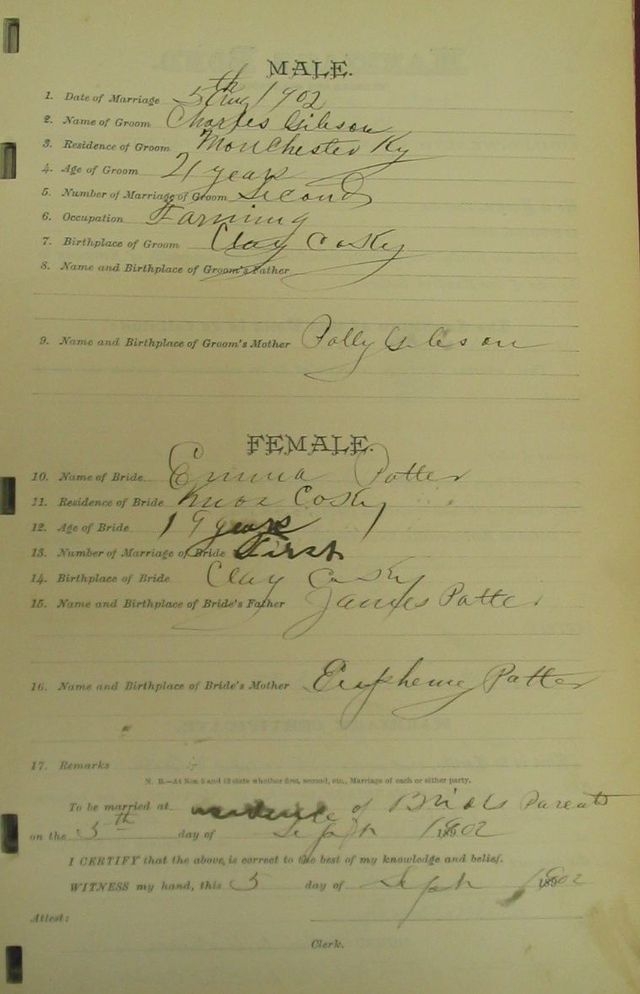 MALE.
1. Date of Marriage 5th Aug 1902
2. Name of Groom Charles Gibson
3. Residence of Groom Monchester Ky
4. Age of Groom 21 years
5. Number of Marriage of Groom Second
6. Occupation Farming
7. Birthplace of Groom Clay Co Ky
8. Name and Birthplace of Groom's Father
9. Name and Birthplace of Groom's Mother Polly Gibson
FEMALE.
10. Name of Bride Emma Potter
11. Residence of Bride Knox Co Ky
12. Age of Bride 19 years
13. Number of Marriage of Bride First
14. Birthplace of Bride Clay Co Ky
15. Name and Birthplace of Bride's Father James Potter
16. Name and Birthplace of Bride's Mother Potter
17. Remarks
N. B.—At Nos. 5 and 13 state whether first, second, etc., Marriage of each or either party.
To be married at residence of Brids Parents
on the 5th day of Sept 1902
I CERTIFY that the above is correct to the best of my knowledge and belief.
WITNESS my hand, this 5 day of Sept 1902
Attest:
Clerk.